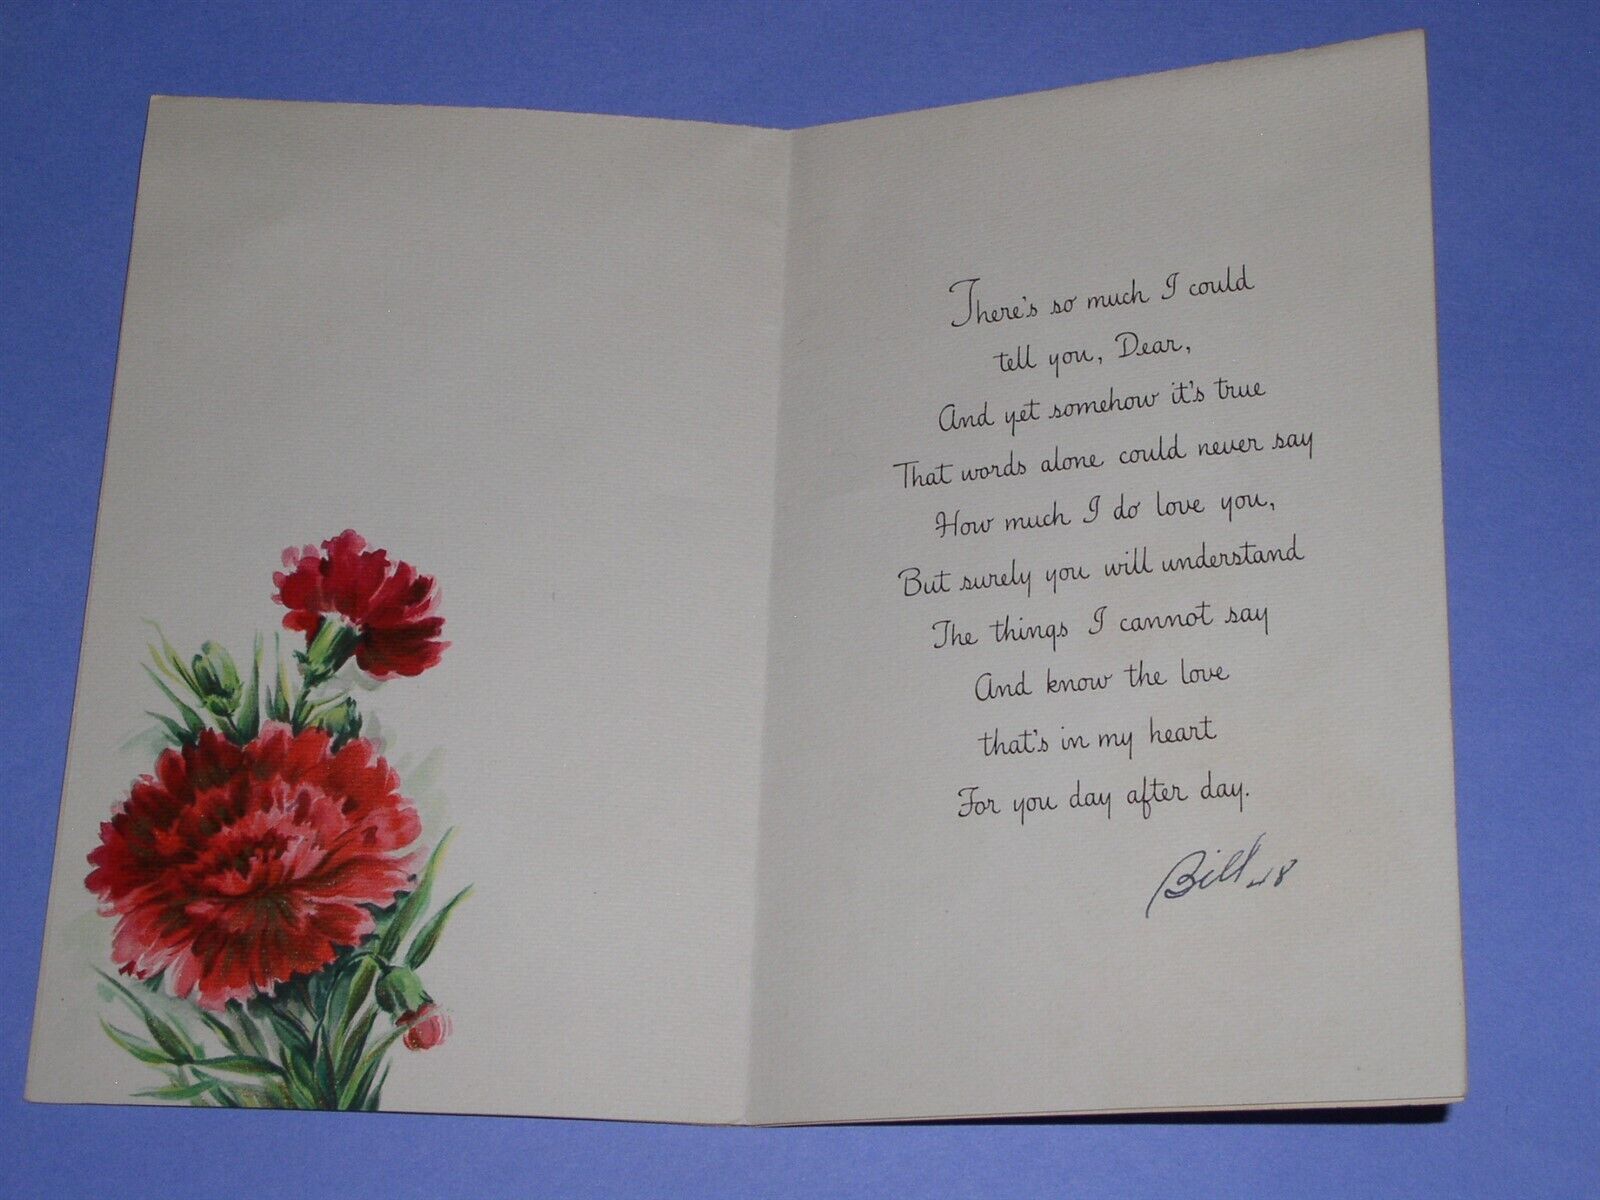 There's so much I could
tell you, Dear,
And yet somehow it's true
That words alone could never say
How much I do love you,
But surely you will understand
The things I cannot say
And know the love
that's in my heart
For you day after day.
Bill 48